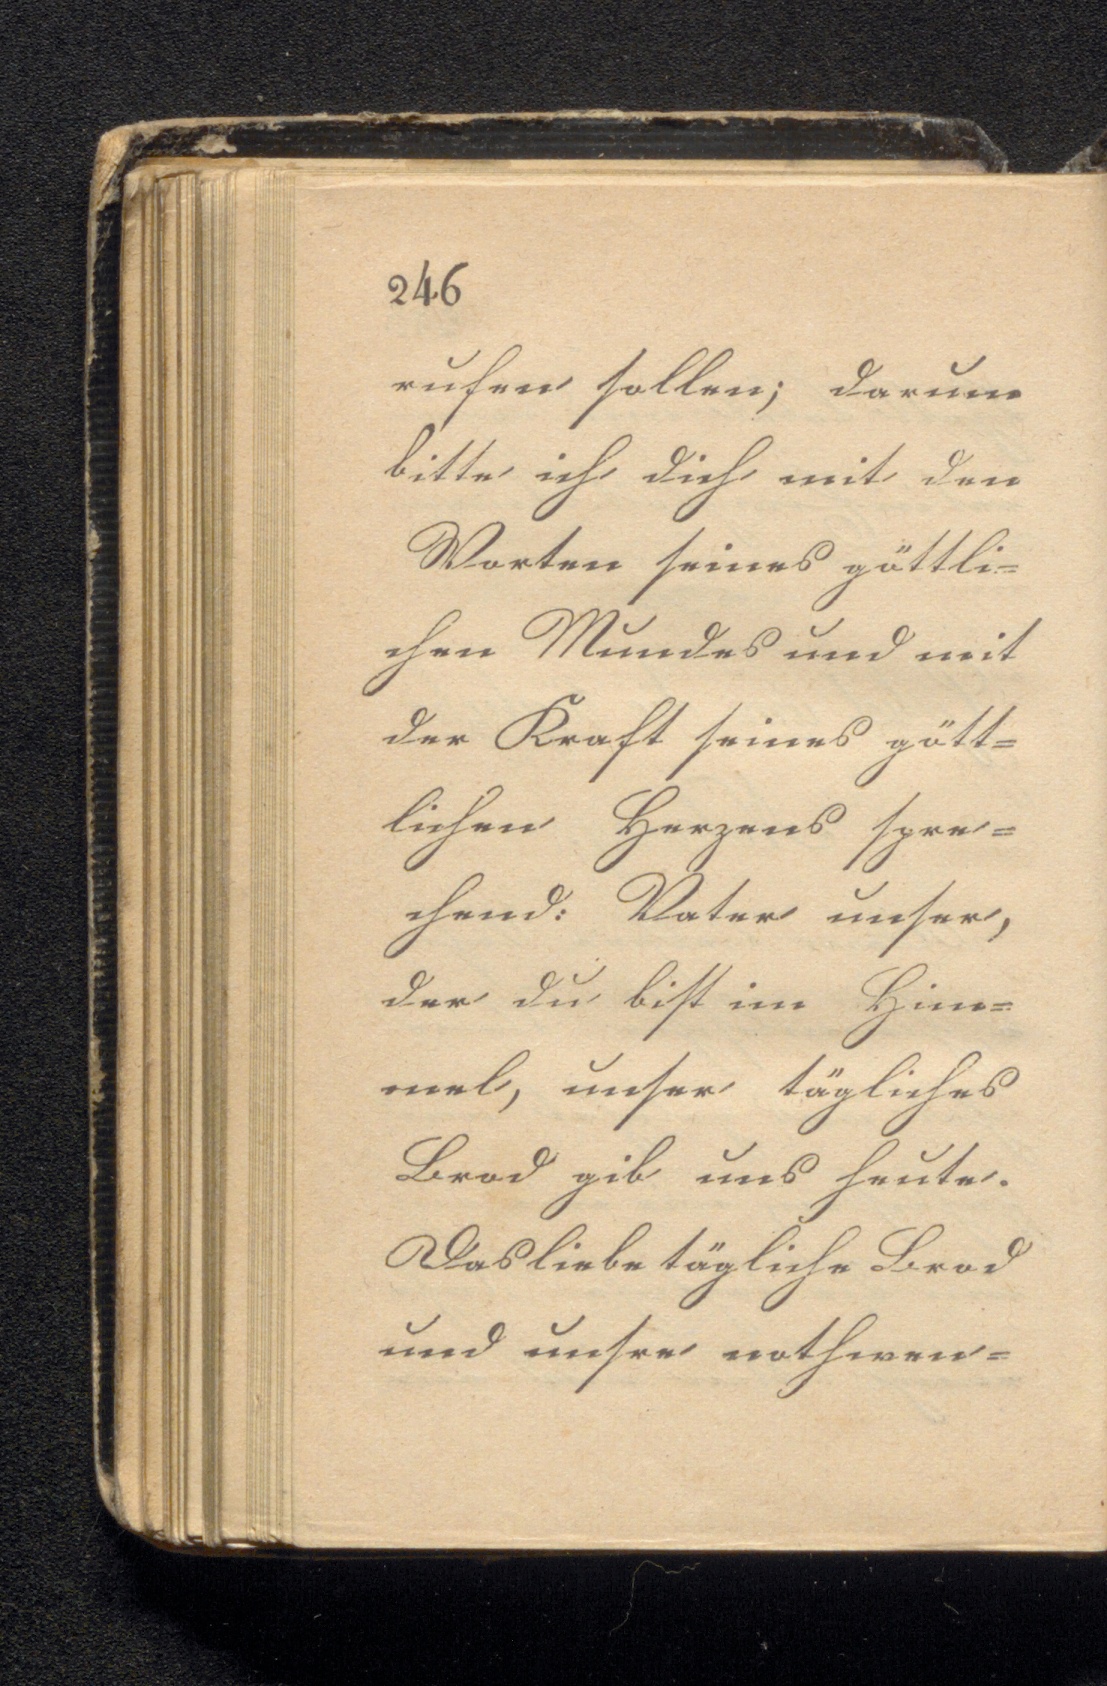 246
rufen sollen; darum
bitte ich dich mit den
Worten seines göttli=
chen Mundes und mit
der Kraft seines gött=
lichen Herzens spre=
chend: Vater unser,
der du bist im Him=
mel, unser tägliches
Brod gib uns heute.
Das liebe tägliche Brod
und unsre nothwen=